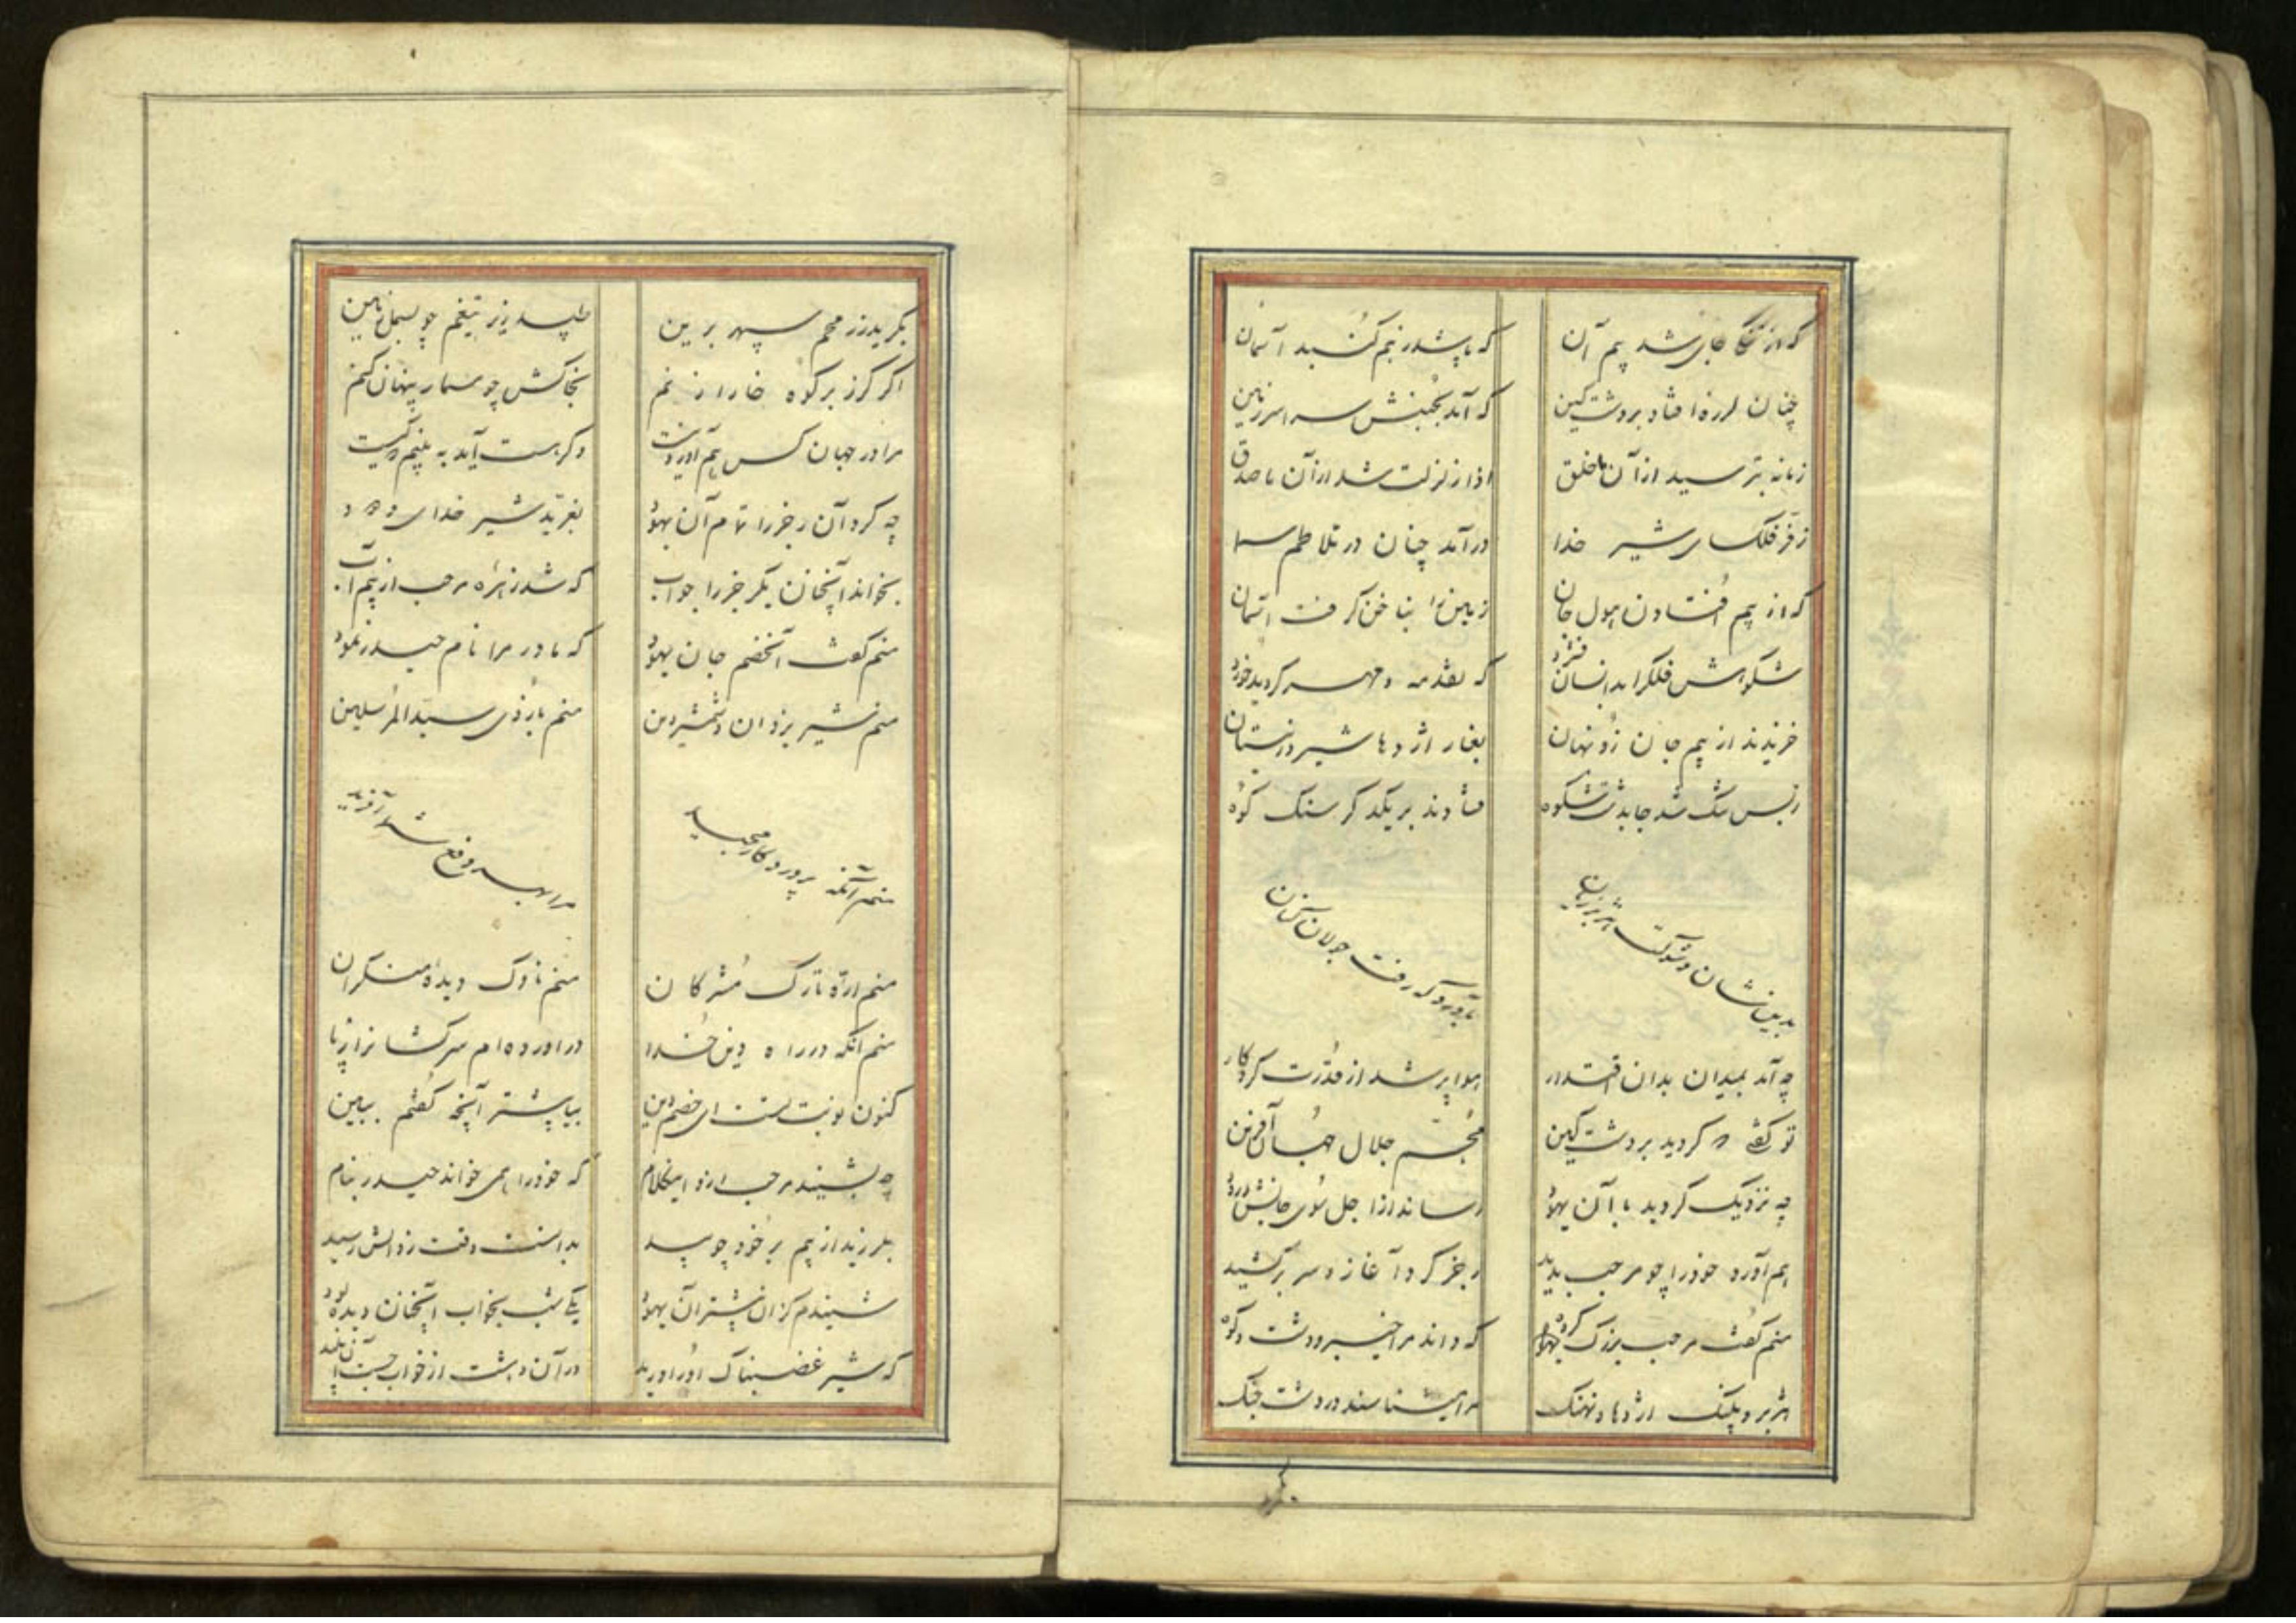 که از تنگ جای شد بیم آن که پاشد ز هم گنبد آسمان
چنان لرزه افتاد بر دشت کین که آمد بجنبش سراسر زمین
زمانه بترسید از آن ما خلق اذا زلزلت شد از آن ما صدق
ز فر فلک سای شیر خدا درآمد چنان در تلاطم
که از بیم افتادن هول جان زمین را بناخن گرفت آسمان
شکوهش فلک را بدانسان فشرد که مه و مهر گردید خورد
خزیدند از بیم جان زو نهان بغار اژدها شیر در نیستان
ز بس تنگ شد جا بدشت شکوه فتادند بر یکدگر سنگ کوه
بدین شان و شوکت هژبر ژیان رفت جولان کنان
چه آمد بمیدان بدان اقتدار هوا پر شد از قدرت کردگار
تو گفتی که گردید بر دشت کین مجسم جلال جهان آفرین
چه نزدیک گردید با آن یهود رساند از اجل سوی جانش درود
هم آورد خود را چو مرحب بدید رجز کرد آغاز و سر برکشید
منم گفت مرحب بزرگ گروه که داند مرا خیبر و دشت و کوه
هژبر و پلنگ اژدها و نهنگ مرا میشناسند در دشت جنگ
بگرید
بگرید ز رمحم سپهر برین طپد زیر تیغم چو بسمل زمین
اگر گرز بر کوه خارا زنم بخاکش چو مسمار پنهان کنم
مرا در جهان کس هم آورد نیست وگر هست آید به بینم که کیست
چه کرد آن رجز را تمام آن یهود بغرید شیر خدای ودود
بخواند آنچنان یک رجز را جواب که شد زهره مرحب از بیم آب
منم گفت آنخصم جان یهود که مادر مرا نام حیدر نمود
منم شیر یزدان و شمشیر دین منم بازوی سید المرسلین
منم آنکه پروردگار مجید مرا بهر دفع شما آفرید
منم اره تارک مشرکان منم ناوک دیده منکران
منم آنکه در راه دین خدا درآورده‌ام سرکشان را ز پا
کنون نوبت تست ای خصم دین بیا پیشتر آنچه گفتم ببین
چه بشنید مرحب از او اینکلام که خود را همی خواند حیدر بنام
بلرزید از بیم بر خود چو بید بدانست وقت زوالش رسید
شنیدم کزان پیشتر آن یهود یکی شب بخواب آنچنان دیده بود
که شیر غضبناک او را درید در آن دهشت از خواب جست آن پلید